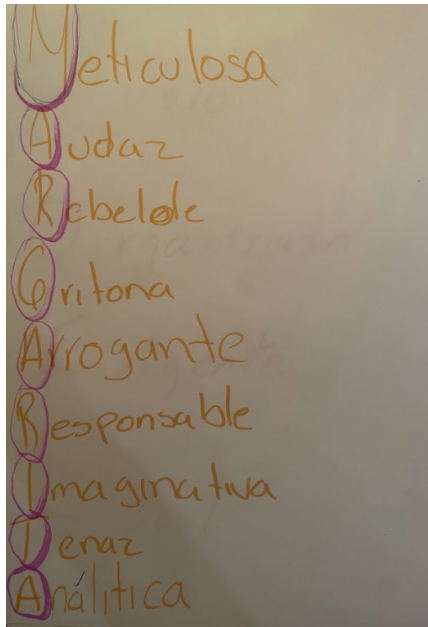 Meticulosa
Audaz
Rebelde
Gritona
Arrogante
Responsable
Imaginativa
Tenaz
Análitica